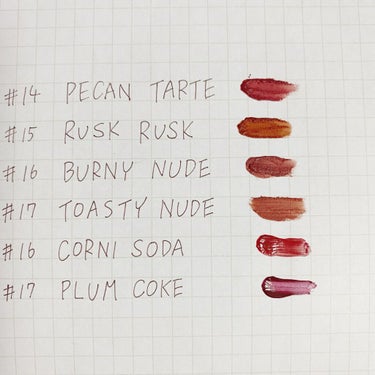 #14 PECAN TARTE
#15 RUSK RUSK
#16 BURNY NUDE
#17 TOASTY NUDE
#16 CORNI SODA
#17 PLUM COKE